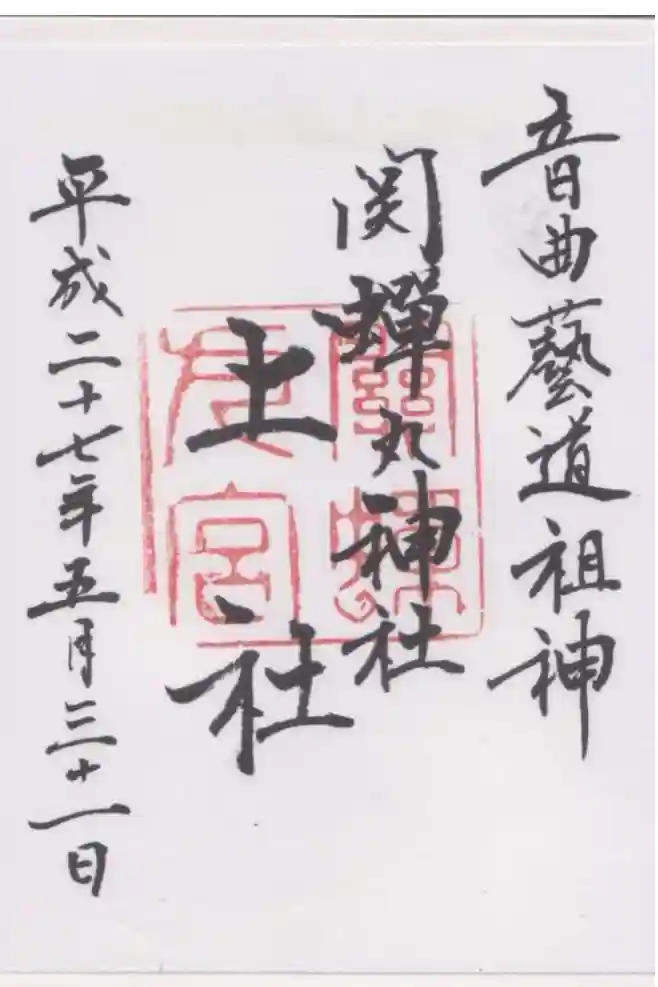 音曲藝道祖神
関蝉丸神社
上社
平成二十七年五月三十一日